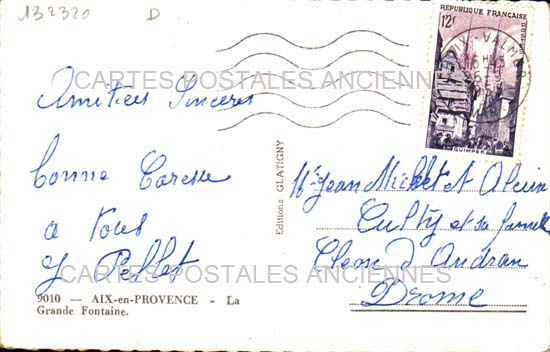 132320 D
REPUBLIQUE FRANÇAISE
12f
QUIMPER
CARTES POSTALES ANCIENNES
Amitiées Sincères
Bonne Caresse
a Vous
Pellet
Editions GLATIGNY
Mr Jean Michel et Alain
Culty et sa famille
Cleon d'Andran
Drome
CARTES POSTALES ANCIENNES
9010 — AIX-en-PROVENCE - La
Grande Fontaine.